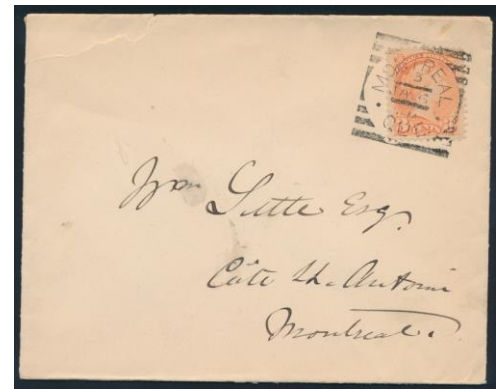 MONTREAL
QUE
Wm Little Esq.
Côte St. Antoine
Montreal.